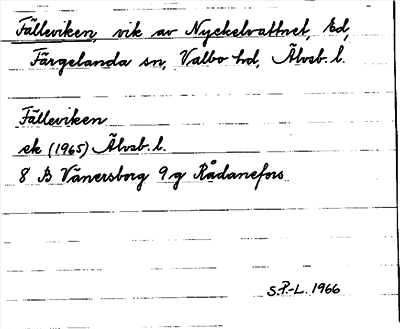 Fälleviken, vik av Nyckelvattnet, Ed,
Färgelanda sn, Valbo hd, Älvsb. l.
Fälleviken
ek (1965) Älvsb. l.
8 B Vänersborg 9 g Rådanefors
S.P.-L. 1966